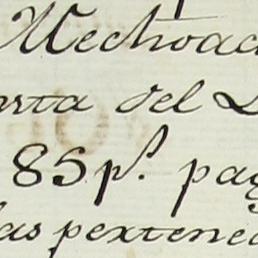 Mechoac
arta del D
85 p.s pag
las pextenec